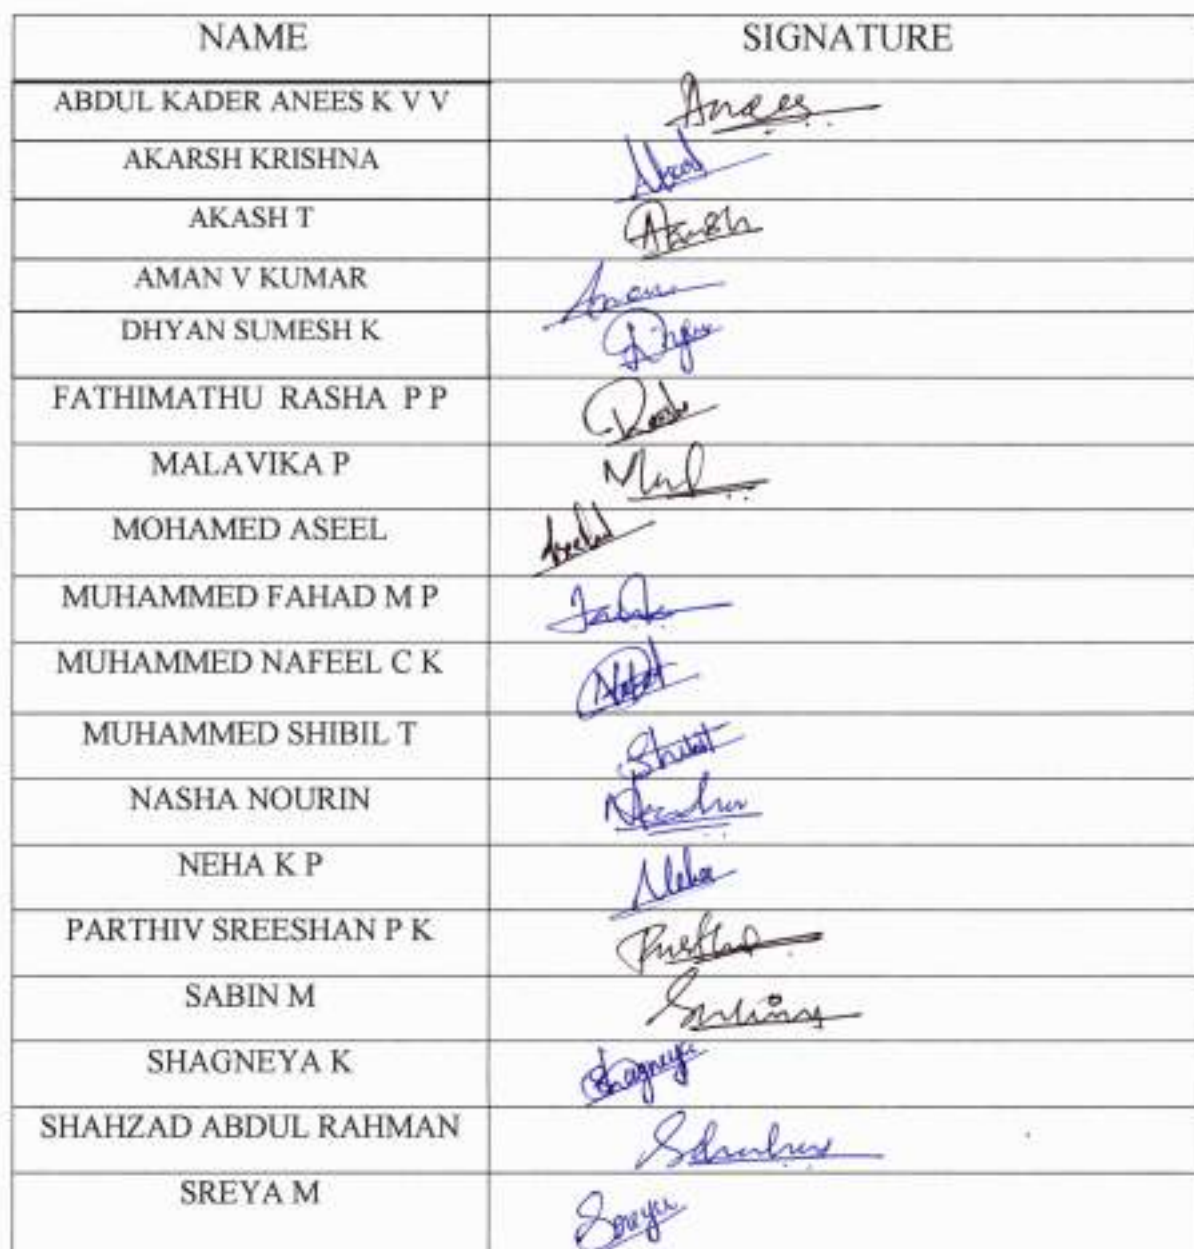 NAME SIGNATURE
ABDUL KADER ANEES K V V Anees
AKARSH KRISHNA
AKASH T Akash
AMAN V KUMAR
DHYAN SUMESH K
FATHIMATHU RASHA P P Rasha
MALAVIKA P Mal
MOHAMED ASEEL
MUHAMMED FAHAD M P
MUHAMMED NAFEEL C K
MUHAMMED SHIBIL T
NASHA NOURIN
NEHA K P Neha
PARTHIV SREESHAN P K
SABIN M
SHAGNEYA K Shagneya
SHAHZAD ABDUL RAHMAN
SREYA M Sreya